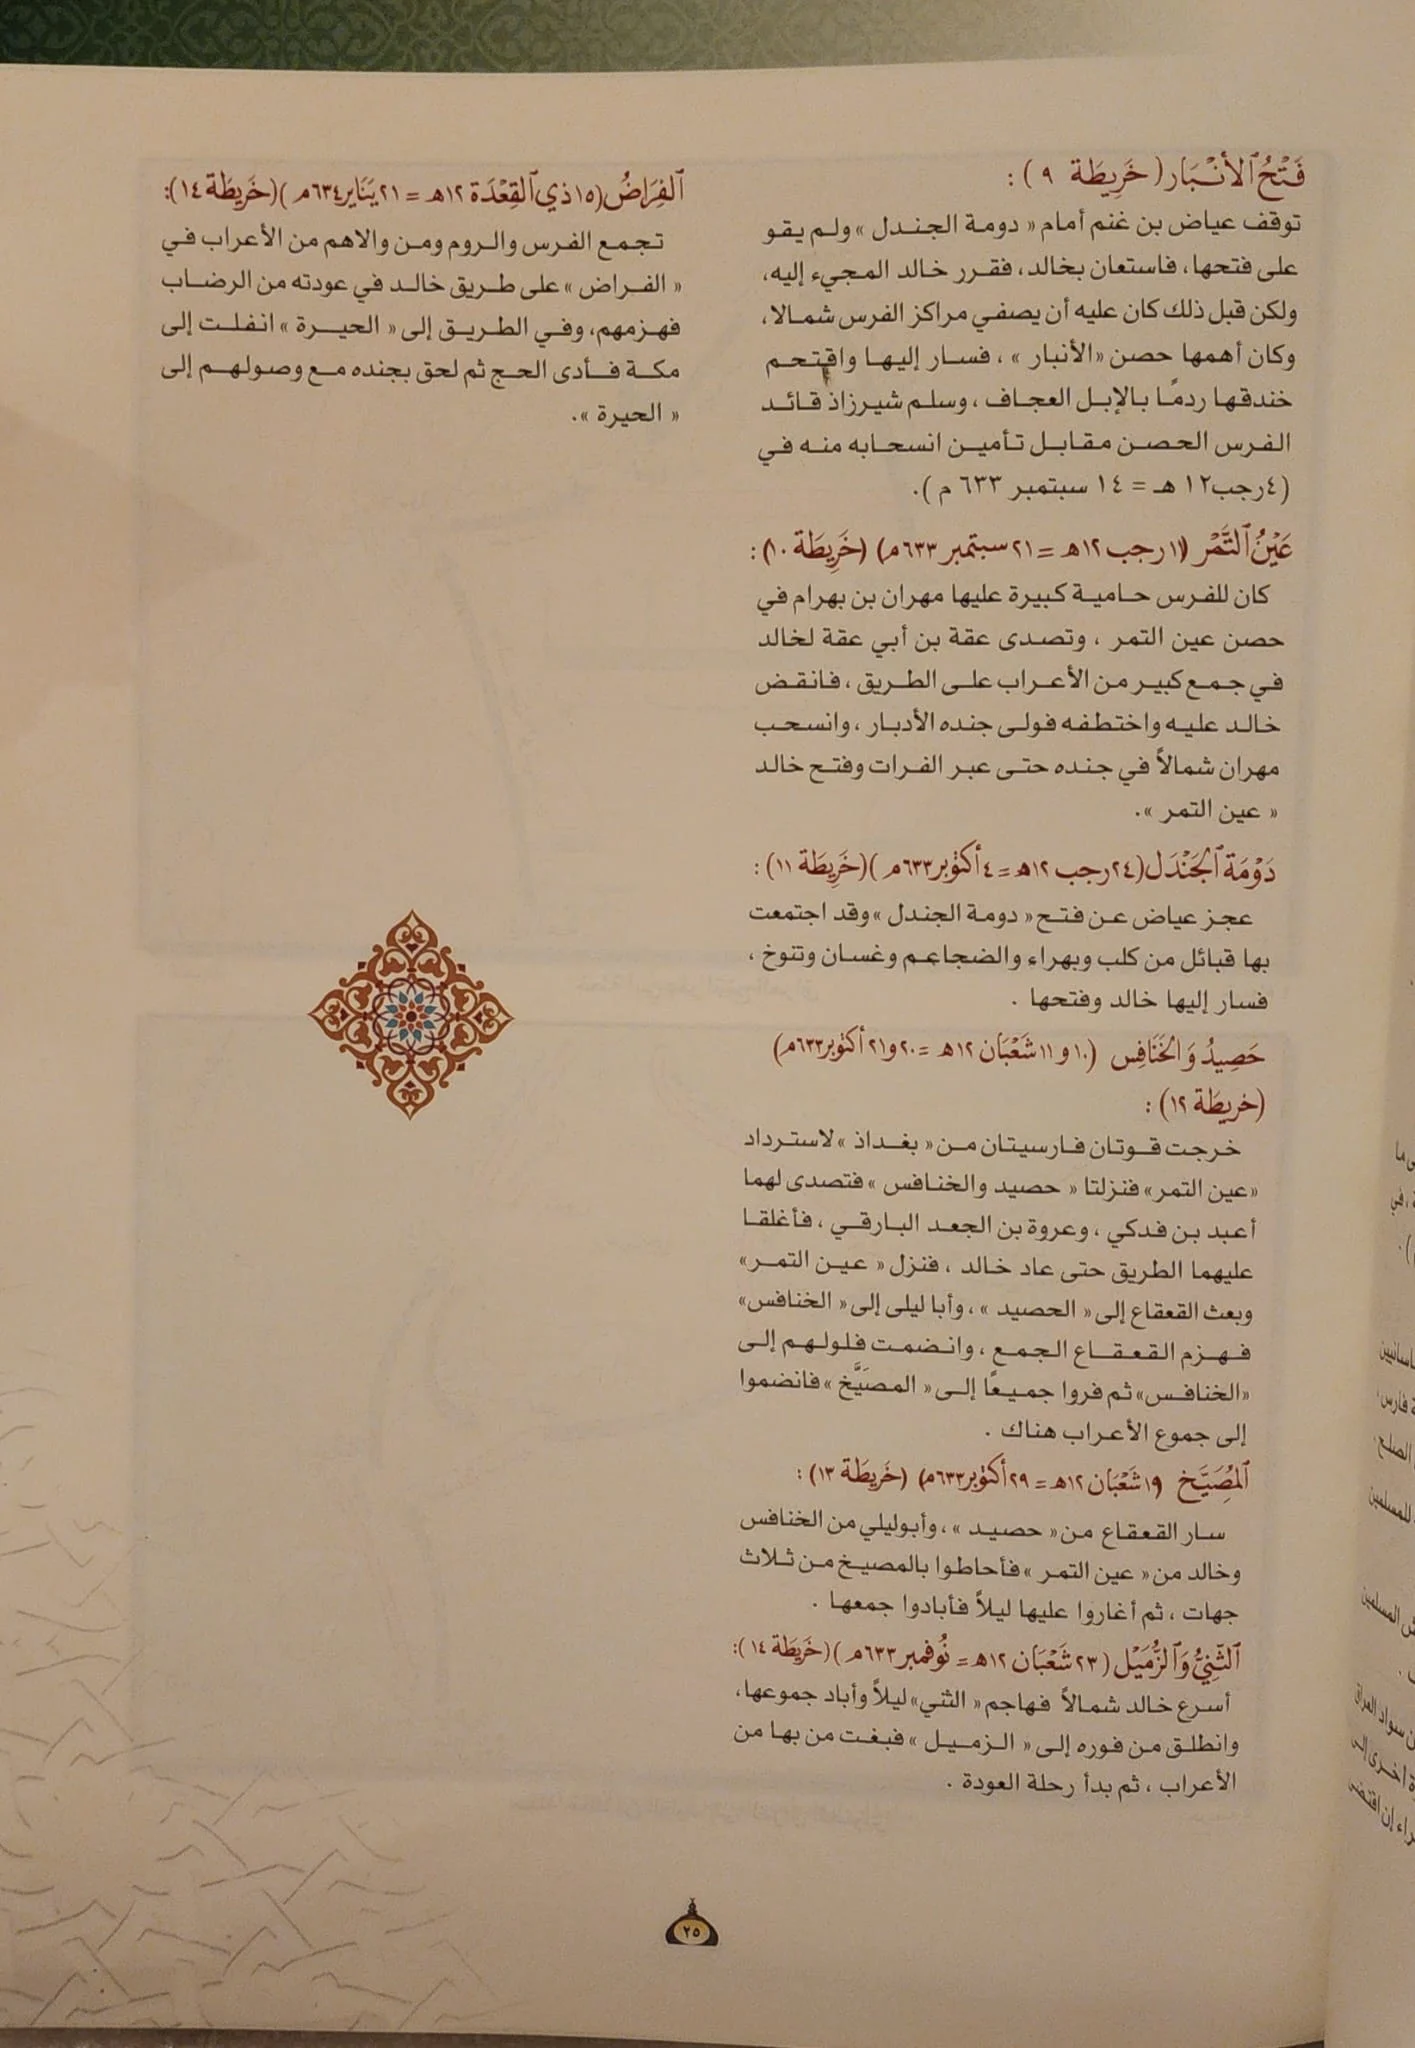 فَتْحُ ٱلْأَنْبَار ( خَرِيطَة ٩ ) :
توقف عياض بن غنم أمام « دومة الجندل » ولم يقو
على فتحها، فاستعان بخالد، فقرر خالد المجيء إليه،
ولكن قبل ذلك كان عليه أن يصفي مراكز الفرس شمالا،
وكان أهمها حصن «الأنبار » ، فسار إليها واقتحم
خندقها ردمًا بالإبل العجاف ، وسلم شيرزاذ قائد
الفرس الحصن مقابل تأمين انسحابه منه في
(٤رجب١٢ هـ = ١٤ سبتمبر ٦٣٣ م ).
عَيْنُ ٱلتَّمْر (١١ رجب ١٢هـ = ٢١ سبتمبر ٦٣٣م) (خَرِيطَة ١٠) :
كان للفرس حامية كبيرة عليها مهران بن بهرام في
حصن عين التمر ، وتصدى عقة بن أبي عقة لخالد
في جمع كبير من الأعراب على الطريق ، فانقض
خالد عليه واختطفه فولى جنده الأدبار ، وانسحب
مهران شمالاً في جنده حتى عبر الفرات وفتح خالد
« عين التمر ».
دَوْمَة ٱلجَنْدَل (٢٤ رجب ١٢هـ = ٤ أكتوبر ٦٣٣م ) (خَرِيطَة ١١) :
عجز عياض عن فتح « دومة الجندل » وقد اجتمعت
بها قبائل من كلب وبهراء والضجاعم وغسان وتنوخ ،
فسار إليها خالد وفتحها .
حَصِيدُ وَالخَنَافِس (١٠ و ١١ شَعْبَان ١٢هـ = ٢٠ و٢١ أكتوبر ٦٣٣م)
(خريطَة ١٢) :
خرجت قوتان فارسيتان من « بغداذ » لاسترداد
«عين التمر» فنزلتا « حصيد والخنافس » فتصدى لهما
أعبد بن فدكي ، وعروة بن الجعد البارقي ، فأغلقا
عليهما الطريق حتى عاد خالد ، فنزل « عين التمر»
وبعث القعقاع إلى « الحصيد » ، وأبا ليلى إلى « الخنافس»
فهزم القعقاع الجمع ، وانضمت فلولهم إلى
«الخنافس» ثم فروا جميعًا إلى « المصَيَّخ » فانضموا
إلى جموع الأعراب هناك .
ٱلمُصَيَّخ (١٩ شَعْبَان ١٢هـ = ٢٩ أكتوبر ٦٣٣م) (خَرِيطَة ١٣) :
سار القعقاع من « حصيد » ، وأبوليلي من الخنافس
وخالد من « عين التمر » فأحاطوا بالمصيخ من ثلاث
جهات ، ثم أغاروا عليها ليلاً فأبادوا جمعها .
ٱلثَّنِيُّ وَٱلزُّمَيْل (٢٣ شَعْبَان ١٢هـ = نُوفمبر ٦٣٣م ) (خَرِيطَة ١٤) :
أسرع خالد شمالاً فهاجم « الثني» ليلاً وأباد جموعها،
وانطلق من فوره إلى « الزميل » فبغت من بها من
الأعراب ، ثم بدأ رحلة العودة .
ٱلفِرَاضُ (١٥ ذي ٱلقِعْدَة ١٢هـ = ٢١ يَنَاير ٦٣٤م ) (خَرِيطَة ١٤):
تجمع الفرس والروم ومن والاهم من الأعراب في
« الفراض » على طريق خالد في عودته من الرضاب
فهزمهم، وفي الطريق إلى « الحيرة » انفلت إلى
مكة فأدى الحج ثم لحق بجنده مع وصولهم إلى
« الحيرة ».
٢٥